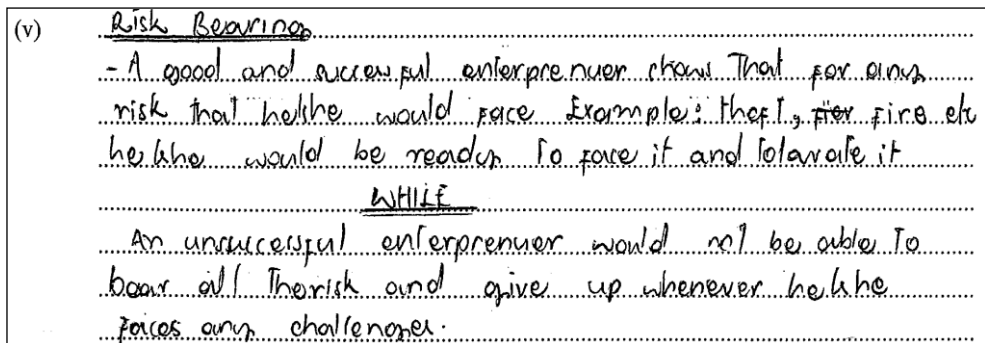 (v) Risk Bearing
- A good and successful enterprenuer shows That for any
risk that he/she would face Example: theft, for fire etc
he/she would be ready To face it and Tolarate it
WHILE
An unsuccessful enterprenuer would not be able To
bear all The risk and give up whenever he/she
faces any challenges.